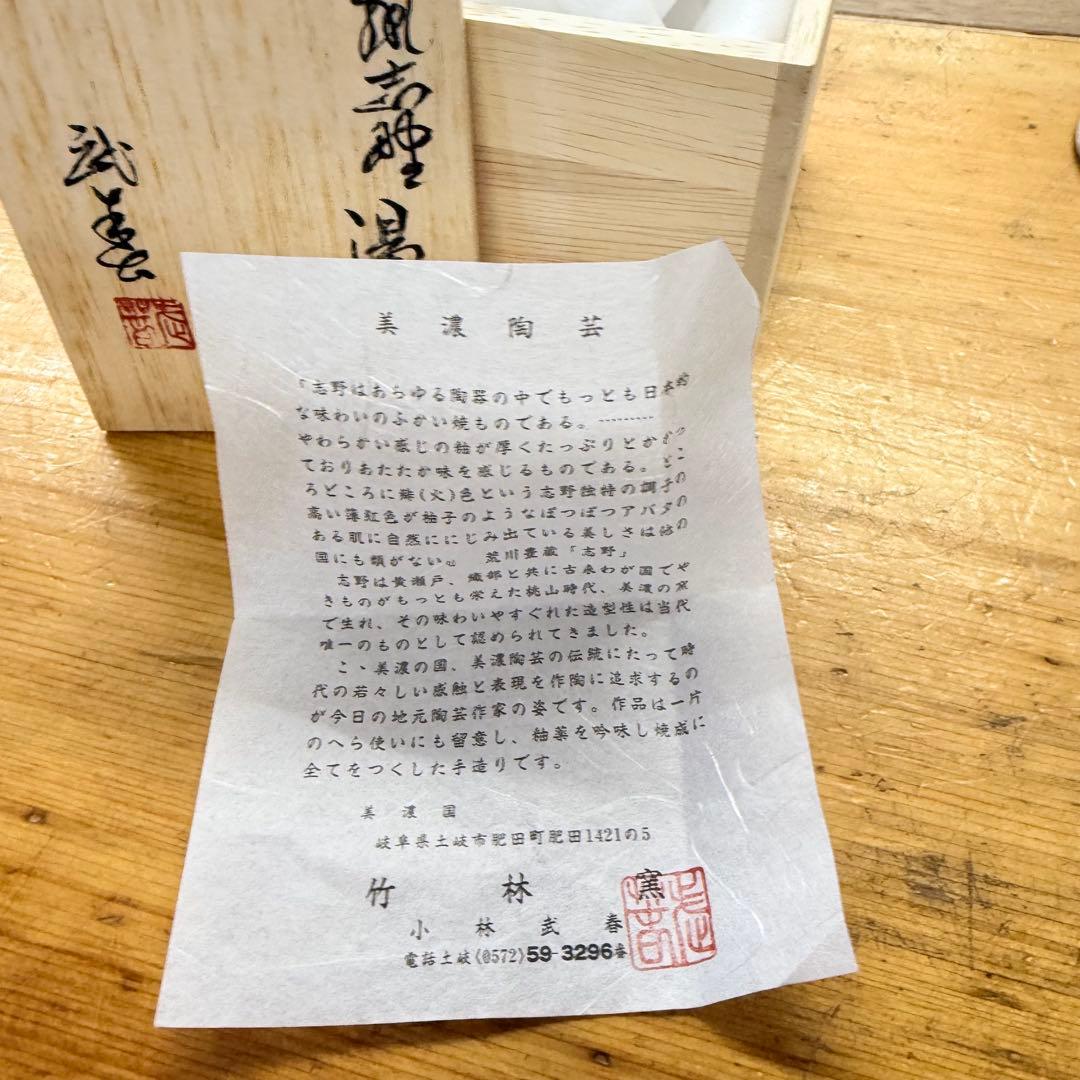 志野湯
武春
美濃陶芸
「志野はあらゆる陶器の中でもっとも日本的
な味わいのふかい焼ものである。………
やわらかい感じの釉が厚くたっぷりとかかっ
ておりあたたか味を感じるものである。とこ
ろどころに緋(火)色という志野独特の調子の
高い薄紅色が柚子のようなぽつぽつアバタの
ある肌に自然ににじみ出ている美しさは他の
国にも類がない。』 荒川豊蔵「志野」
志野は黄瀬戸、織部と共に古来わが国でや
きものがもっとも栄えた桃山時代、美濃の窯
で生れ、その味わいやすぐれた造型性は当代
唯一のものとして認められてきました。
こゝ美濃の国、美濃陶芸の伝統にたって時
代の若々しい感触と表現を作陶に追求するの
が今日の地元陶芸作家の姿です。作品は一片
のへら使いにも留意し、釉薬を吟味し焼成に
全てをつくした手造りです。
美濃国
岐阜県土岐市肥田町肥田1421の5
竹林窯
小林武春
電話土岐(0572)59-3296番